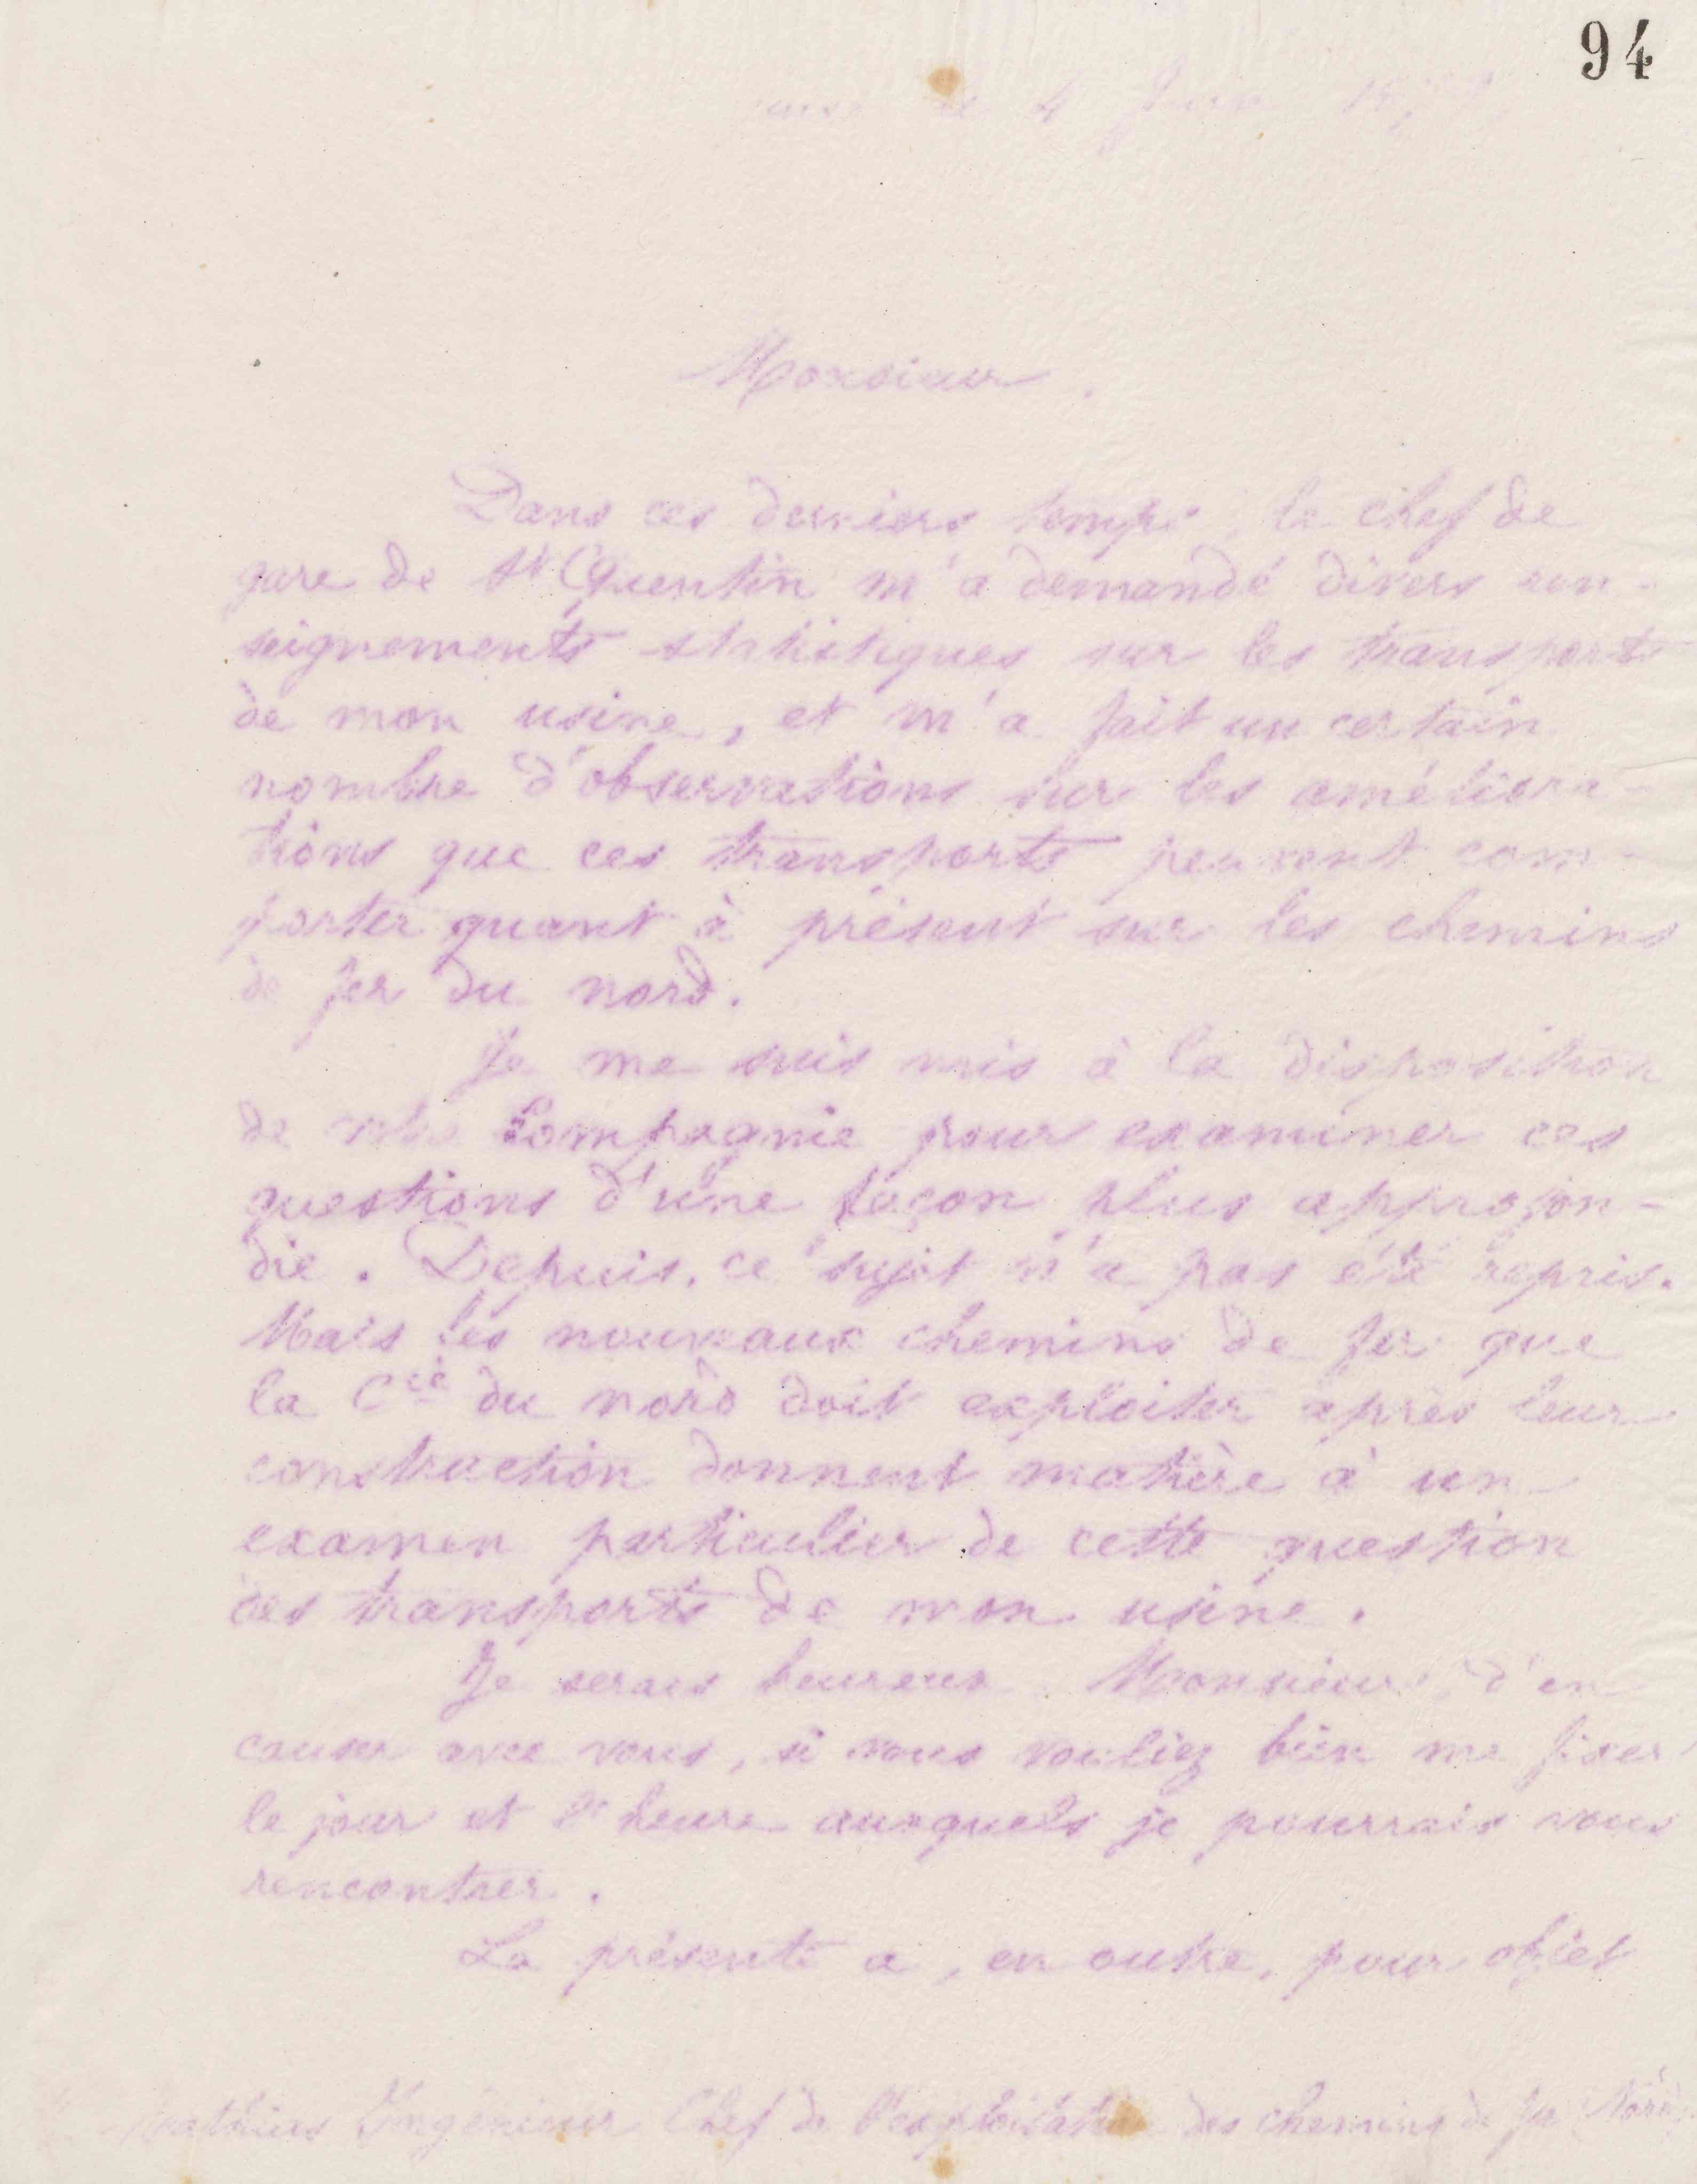 94
le 4
Monsieur
Dans ces derniers temps, le chef de
gare de St Quentin m'a demandé divers ren-
seignements statistiques sur les transports
de mon usine, et m'a fait un certain
nombre d'observations sur les améliora-
tions que ces transports peuvent com-
porter quant à présent sur les chemins
de fer du nord.
Je me suis mis à la disposition
de votre Compagnie pour examiner ces
questions d'une façon plus approfon-
die. Depuis, ce sujet n'a pas été repris.
Mais les nouveaux chemins de fer que
la Cie du nord doit exploiter après leur
construction donnent matière à un
examen particulier de cette question
des transports de mon usine.
Je serais heureux Monsieur, d'en
causer avec vous, si vous vouliez bien me fixer
le jour et l'heure auxquels je pourrais vous
rencontrer.
La présente a, en outre, pour objet
Mathias Ingénieur Chef de l'exploitation des chemins de fer Nord